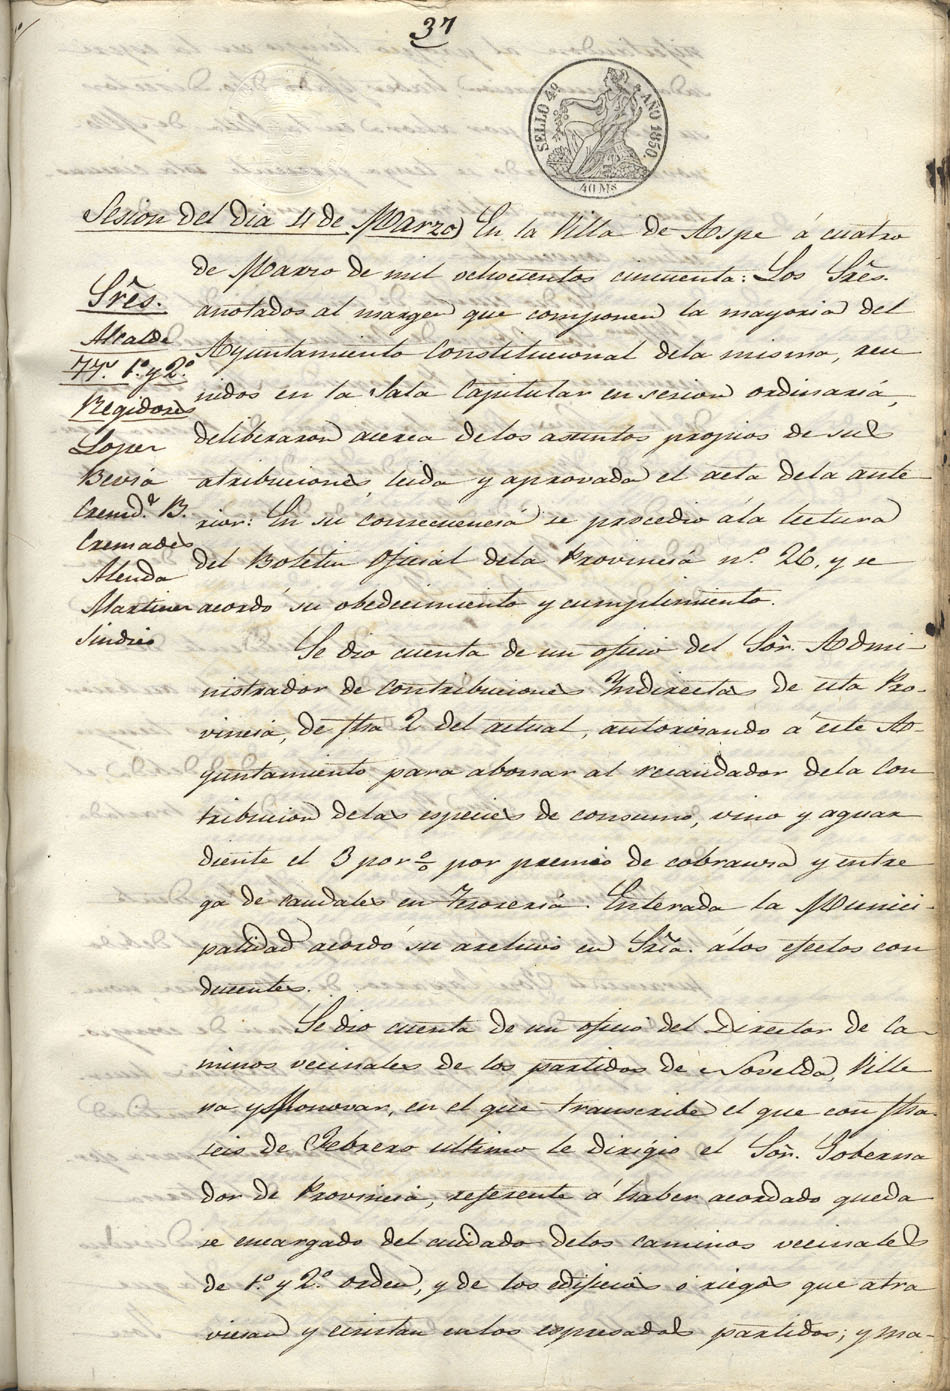 37
SELLO 4º AÑO 1850
40 Ms
Sesion del dia 4 de Marzo) En la Villa de Aspe á cuatro
de Marzo de mil ochocientos cincuenta: Los Sres.
anotados al margen que componen la mayoria del
Ayuntamiento Constitucional dela misma, reu
nidos en la Sala Capitular en sesion ordinaria,
deliberaron acerca delos asuntos propios de sus
atribuciones, leida y aprovada el acta dela ante
rior: En su consecuencia se procedió ála lectura
del Boletin Oficial dela Provincia nº. 26, y se
acordó su obedecimiento y cumplimiento.
Sres.
Alcalde
TTs. 1º. y 2º.
Regidores
Loper
Bevia
Cremds. B.
Cremades
Alenda
Martiner
Sindico
Se dio cuenta de un oficio del Sor. Admi-
nistrador de Contribuciones Yndirectas de esta Pro-
vincia, de fha 2 del actual, autorizando á este A-
yuntamiento para abonar al recaudador dela Con
tribucion delas especies de consumo, vino y aguar
diente el 3 por % por premio de cobranza y entre
ga de caudales en Tesoreria. Enterada la Munici-
palidad acordó su archivo en Sria. álos efectos con
ducentes.
Se dio cuenta de un oficio del Director de Ca-
minos vecinales de los partidos de Novelda, Ville
na y Monovar, en el que transcribe el que con fha
seis de Febrero ultimo le dirigio el Sor. Goberna
dor de Provincia, referente á haber acordado queda
se encargado del cuidado delos caminos vecinales
de 1º. y 2º. orden, y de los edificios o riegos que atra
viesan y ecsistan enlos espresados partidos; y ma-